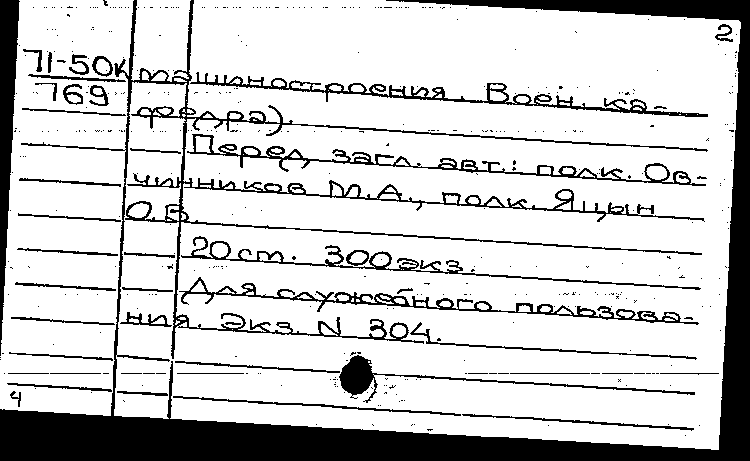 2
71-50к машиностроения. Воен. ка-
769 федра).
Перед загл. авт.: полк. Ов-
чинников М.А., полк. Яцын
О.В.
20 ст. 300 экз.
Для служебного пользова-
ния. Экз. N 304.
4